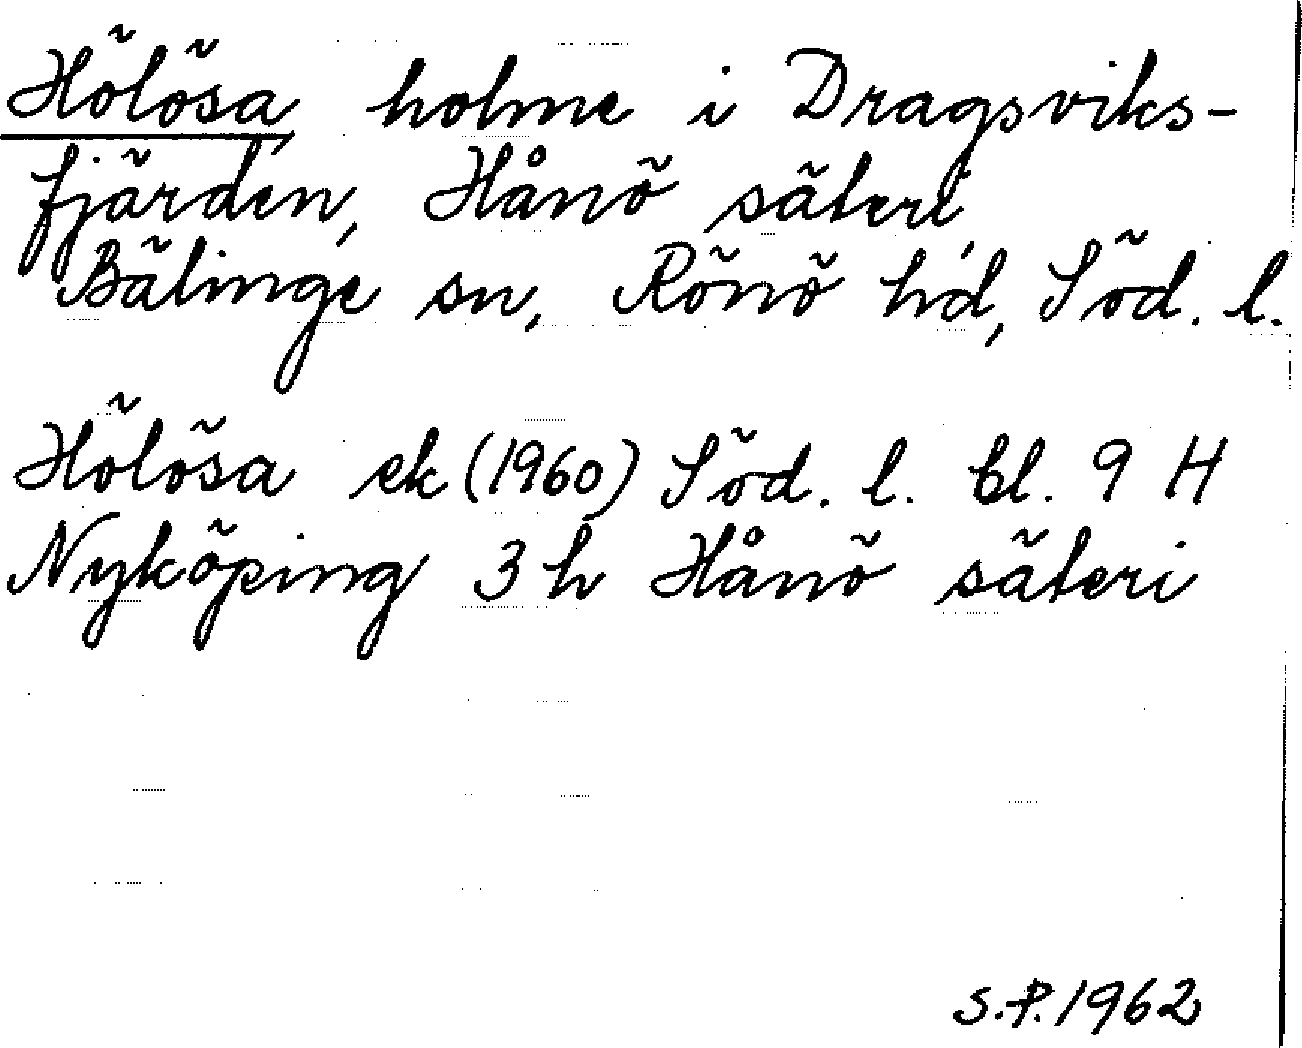 Hölösa holme i Dragsviks-
fjärden, Hånö säteri,
Bälinge sn, Rönö hd, Söd. l.
Hölösa ek (1960) Söd. l. bl. 9 H
Nyköping 3 h Hånö säteri
S.P. 1962